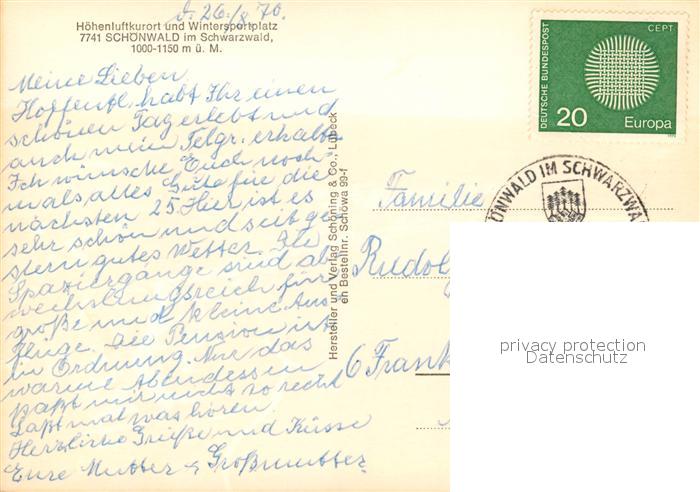 d. 26./8.70.
Höhenluftkurort und Wintersportplatz
7741 SCHÖNWALD im Schwarzwald,
1000-1150 m ü. M.
Meine Lieben
Hoffentl. habt Ihr einen
schönen Tag erlebt und
auch mein Telgr. erhalten
Ich wünsche Euch noch
mals alles Gute für die
nächsten 25. Hier ist es
sehr schön und seit ge
stern gutes Wetter. Die
Spaziergänge sind ab
wechslungsreich für
große und kleine Aus
flüge. Die Pension ist
in Ordnung. Nur das
warme Abendessen
paßt mir nicht so recht
Laßt mal was hören.
Herzliche Grüße und Küsse
Eure Mutter u. Großmutter
Hersteller und Verlag Schöning & Co., Lübeck
en Bestellnr. Schöwa 99-f
DEUTSCHE BUNDESPOST
CEPT
20 Europa
SCHÖNWALD IM SCHWARZWA
Familie
Rudol
6 Frank
privacy protection
Datenschutz